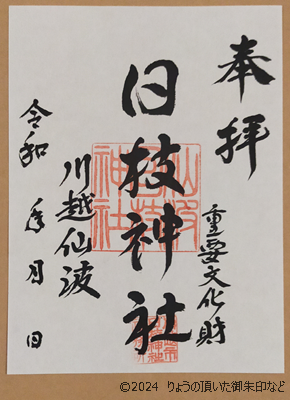 奉拝
重要文化財
日枝神社
川越仙波
令和 年 月 日
©2024 りょうの頂いた御朱印など